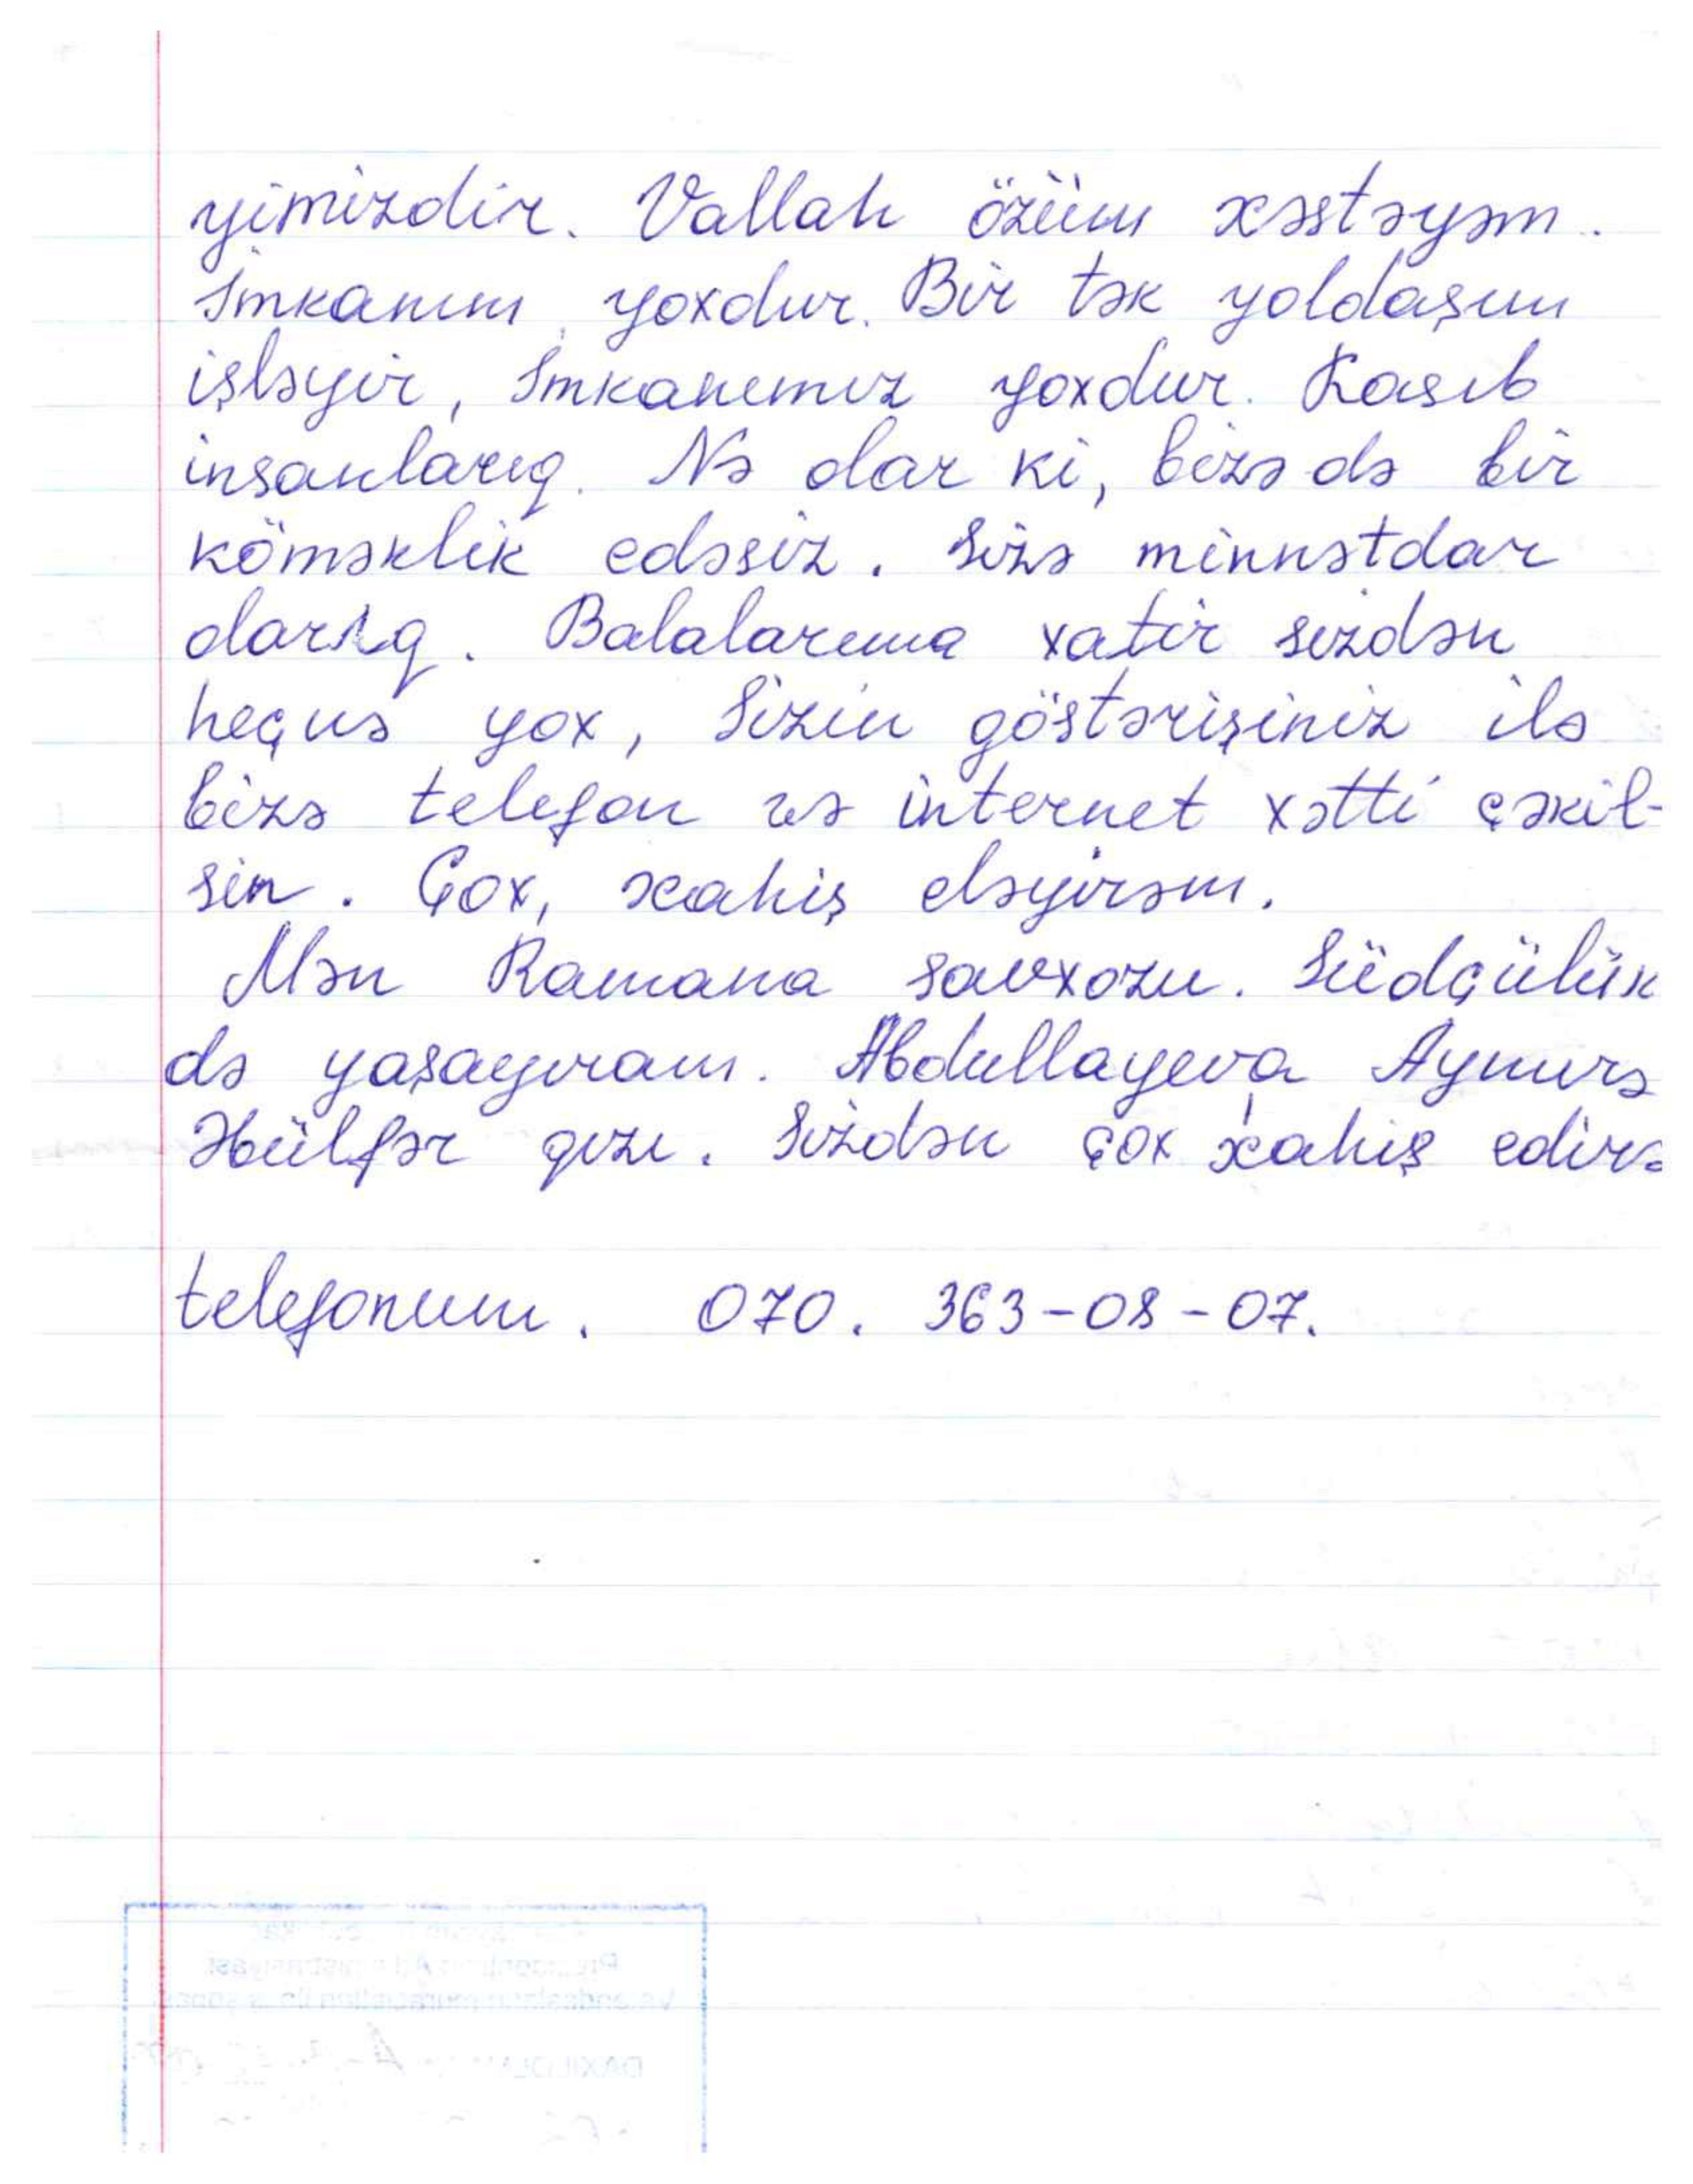 yimizdir. Vallah özüm xəstəyəm.
İmkanım yoxdur. Bir tək yoldaşım
işləyir, İmkanımız yoxdur. Kasıb
insanlarıq. Nə olar ki, bizə də bir
köməklik edəsiz. Sizə minnətdar
olarıq. Balalarıma xatir sizdən
heçnə yox, Sizin göstərişiniz ilə
bizə telefon və internet xətti çəkil-
sin. Çox, xahiş eləyirəm.
Mən Ramana savxozu. Südçülük
də yaşayıram. Abdullayeva Aynurə
Əbülfər qızı. Sizdən çox xahiş edirə
telefonum. 070. 363-08-07.